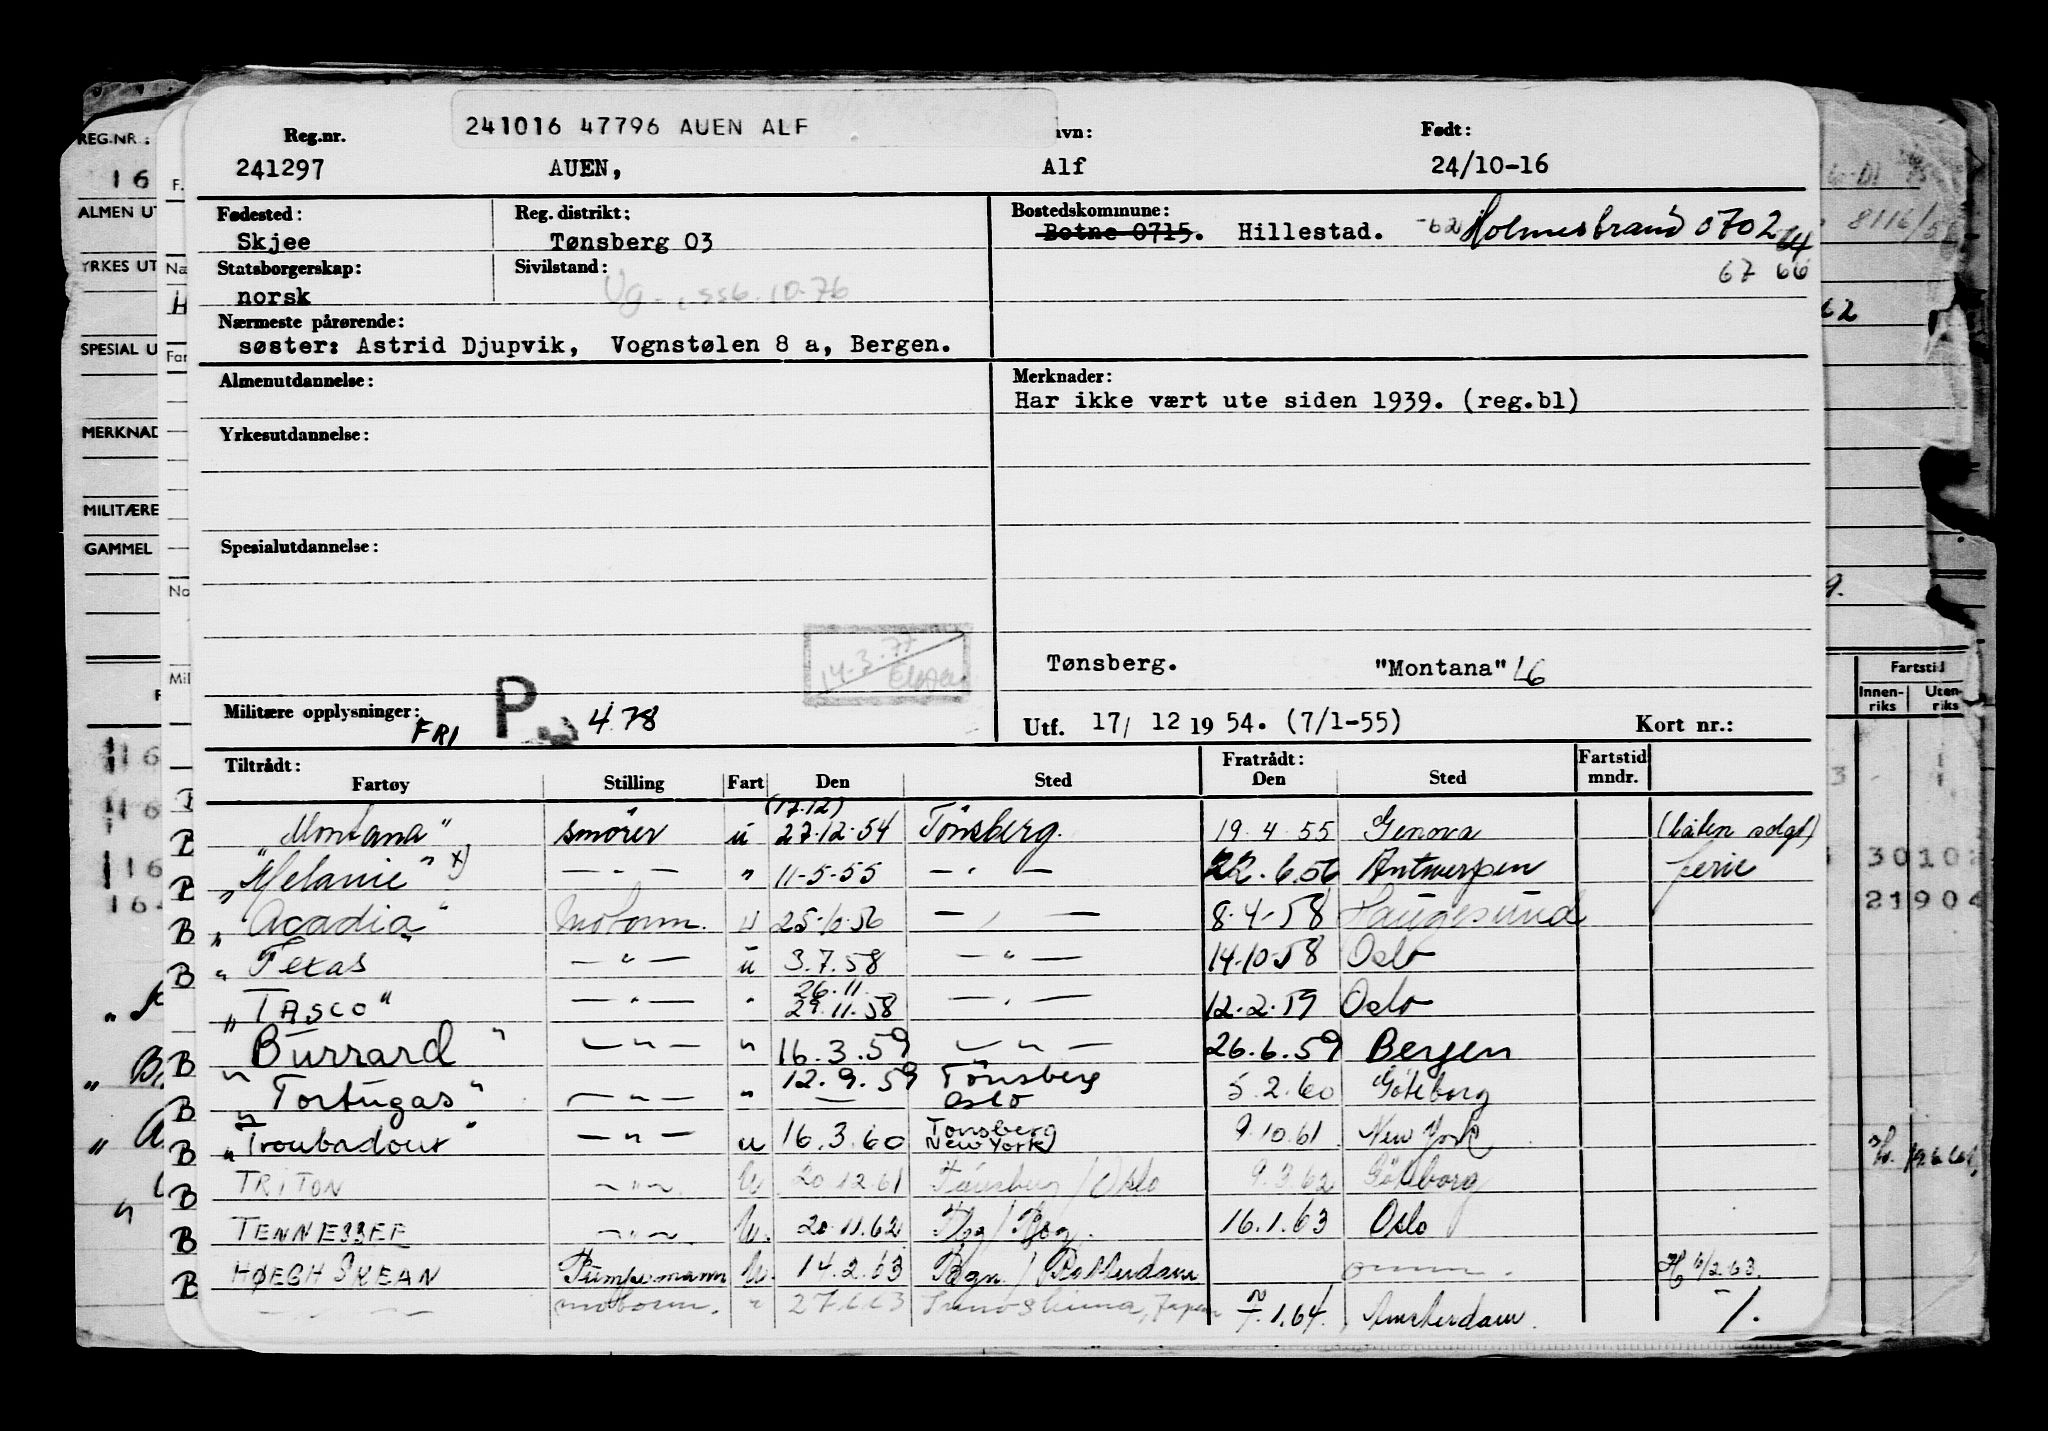 241016 47796 AUEN ALF
Reg.nr. Født:
241297 AUEN, Alf 24/10-16
Fødested: Reg. distrikt: Bostedskommune:
Skjee Tønsberg 03 Botne 0715. Hillestad. -62 Holmestrand 0702 64
67 66
Statsborgerskap: Sivilstand:
norsk
Nærmeste pårørende:
søster: Astrid Djupvik, Vognstølen 8 a, Bergen.
Almenutdannelse: Merknader:
Har ikke vært ute siden 1939. (reg.bl)
Yrkesutdannelse:
Spesialutdannelse:
14-3-77
Tønsberg. "Montana" L6
Militære opplysninger: FRI P 4 78
Utf. 17/ 12 19 54. (7/1-55) Kort nr.:
Tiltrådt: Fratrådt: Fartstid
Fartøy Stilling Fart Den Sted Den Sted mndr.
(17.12)
B "Montana" smører u 27-12-54 Tønsberg. 19 4 55 Genova (båten solgt)
B "Melanie" x) — " — " 11-5-55 — " — 22.6.56 Antwerpen ferie
B "Acadia" Motorm. u 25-6-56 — " — 8-4-58 Haugesund
B "Texas" — " — u 3.7.58 — " — 14-10-58 Oslo
26.11.
"TASCO" — " — " 29.11.58 — " — 12.2.59 Oslo
B "Burrard" — " — " 16.3.59 — " — 26.6.59 Bergen
B "Tortugas" — " — " 12.9.59 Tönsberg Oslo 5.2.60 Göteborg
B "Troubadour" — " — u 16.3.60 Tönsberg (New York) 9.10.61 New York
B TRITON — " — U 20.12.61 Tönsberg / Oslo 9.3.62 Göteborg
B TENNESSEE — " — U. 20.11.62 Tbg / Bg. 16.1.63 Oslo
B HØEGH SKEAN Pumpemann U. 14.2.63 Bgn. / Rotterdam H 6/2.63.
— " — motorm. " 27.6.63 Innoshima, Japan 7.1.64. Amsterdam. /.
REG.NR.:
16
ALMEN UT
YRKES UT
SPESIAL U
MERKNAD
MILITÆRE
GAMMEL
8116/5
62
Fartstid
Innen-riks Uten-riks
30102
21904